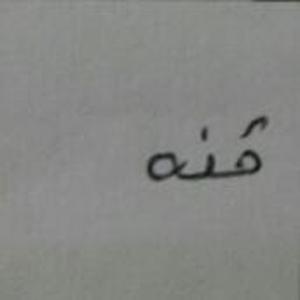 قنه